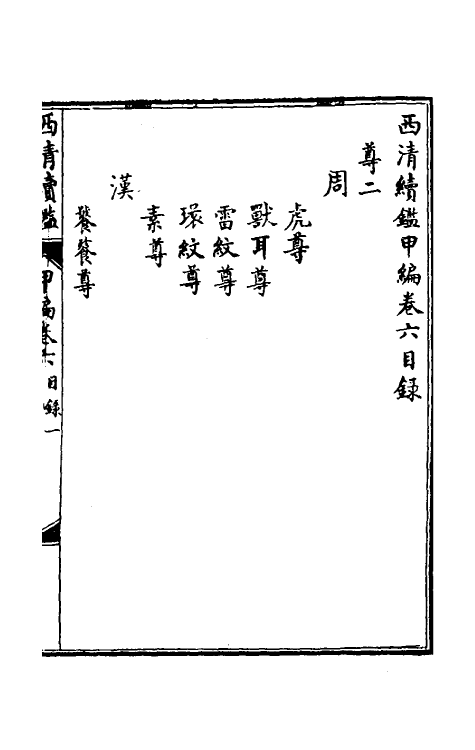 西清續鑑甲編卷六目録
尊二
周
虎尊
獸耳尊
雷紋尊
環紋尊
素尊
漢
饕餮尊
西清續鑑 甲編卷六 目録 一